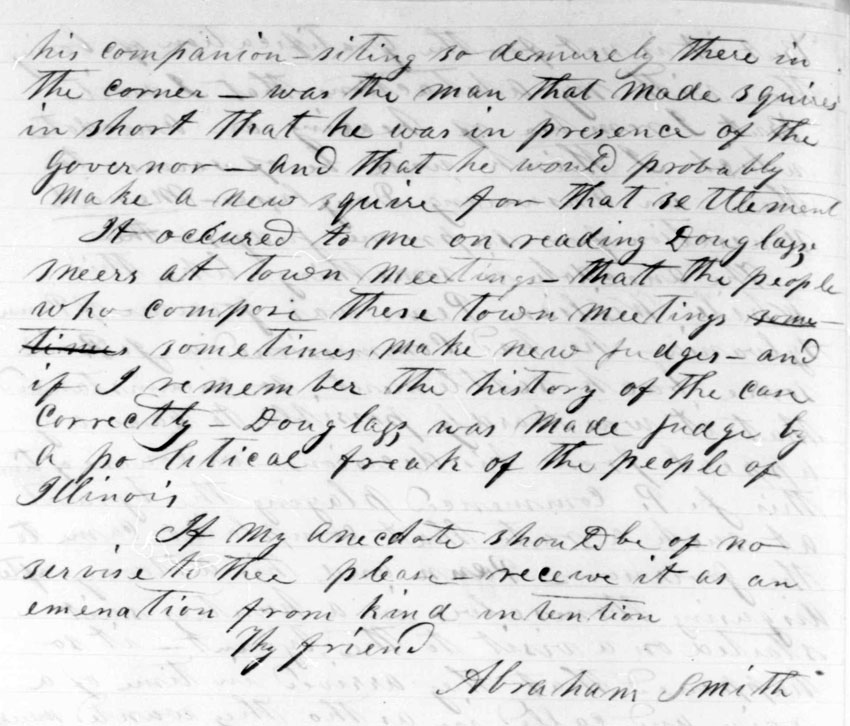 his companion – siting so demurely there in
the corner – was the man that made squires
in short that he was in presence of the
Governor – and that he would probably
make a new squire for that settlement
It occured to me on reading Douglass,
sneers at town meetings – that the people
who compose these town meetings some-
times sometimes make new judges – and
if I remember the history of the case
correctly – Douglass, was made judge by
a political freak of the people of
Illinois
If my anecdote should be of no
servise to thee please – receive it as an
emenation from kind intention
Thy friend
Abraham Smith